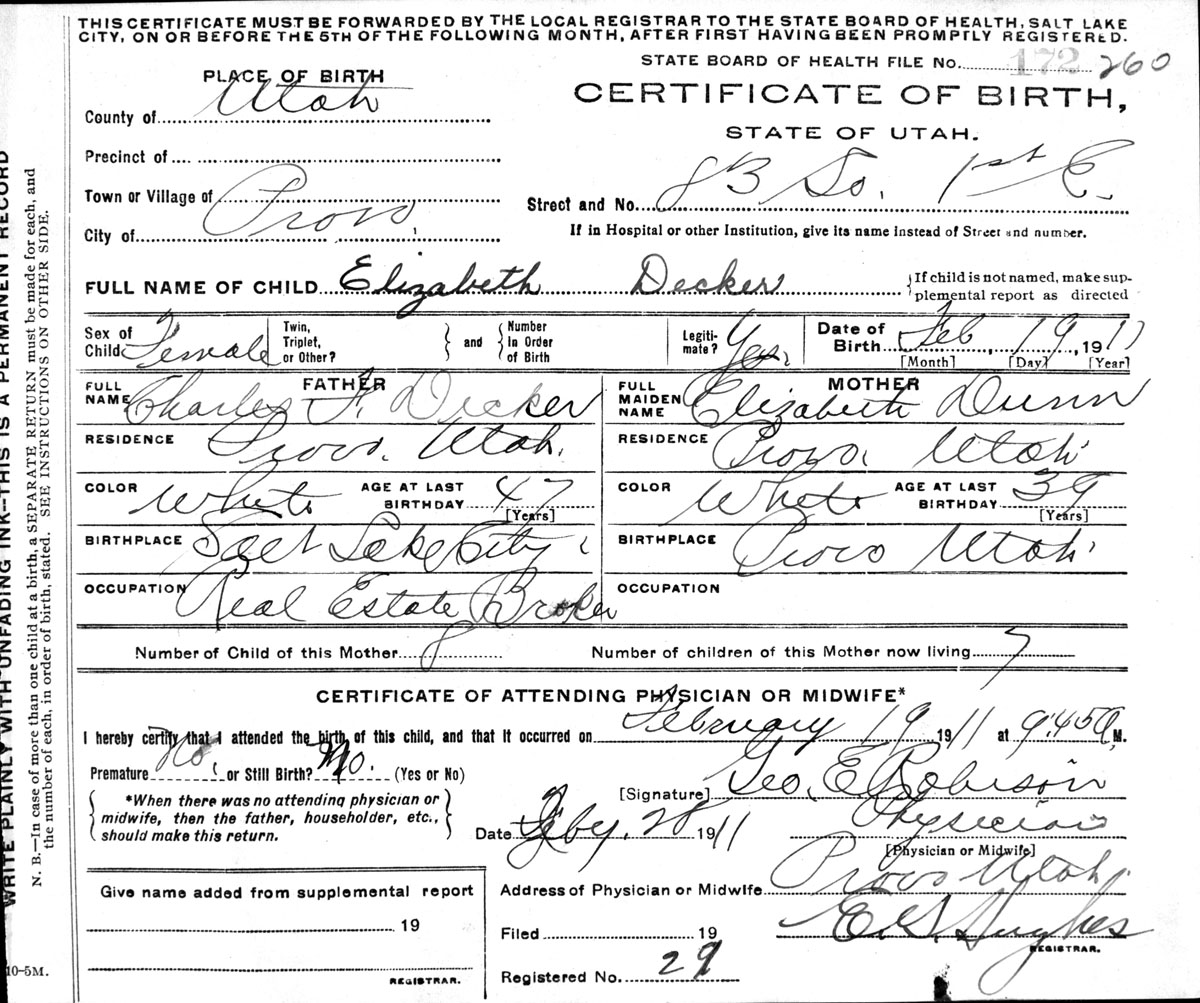 THIS CERTIFICATE MUST BE FORWARDED BY THE LOCAL REGISTRAR TO THE STATE BOARD OF HEALTH, SALT LAKE
CITY, ON OR BEFORE THE 5TH OF THE FOLLOWING MONTH, AFTER FIRST HAVING BEEN PROMPTLY REGISTERED.
STATE BOARD OF HEALTH FILE No. 172 260
PLACE OF BIRTH
CERTIFICATE OF BIRTH,
County of Utah
STATE OF UTAH.
Precinct of
Town or Village of Provo,
Street and No. 83 So. 1st E.
City of
If in Hospital or other Institution, give its name instead of Street and number.
FULL NAME OF CHILD Elizabeth Decker
{If child is not named, make sup-
plemental report as directed
Sex of Child Female
Twin, Triplet, or Other?
} and {
Number In Order of Birth
Legiti-mate? Yes.
Date of Birth Feb, 19, 1911
[Month] [Day] [Year]
FATHER
FULL NAME Charles F. Decker
MOTHER
FULL MAIDEN NAME Elizabeth Dunn
RESIDENCE Provo. Utah.
RESIDENCE Provo. Utah
COLOR White AGE AT LAST BIRTHDAY 47 [Years]
COLOR White AGE AT LAST BIRTHDAY 39 [Years]
BIRTHPLACE Salt Lake City
BIRTHPLACE Provo Utah
OCCUPATION Real Estate Broker
OCCUPATION
Number of Child of this Mother 8
Number of children of this Mother now living 7
CERTIFICATE OF ATTENDING PHYSICIAN OR MIDWIFE*
I hereby certify that I attended the birth of this child, and that it occurred on February 19 1911 at 9:45 A, M.
Premature No. or Still Birth? No. (Yes or No)
[Signature] Geo. E Robison
*When there was no attending physician or
midwife, then the father, householder, etc.,
should make this return.
Date Feby. 28 1911
Physician
[Physician or Midwife]
Address of Physician or Midwife Provo Utah
Give name added from supplemental report
19
REGISTRAR.
Filed 19
E. G. Hughes
REGISTRAR.
Registered No. 29
WRITE PLAINLY WITH UNFADING INK—THIS IS A PERMANENT RECORD
N. B.—In case of more than one child at a birth, a SEPARATE RETURN must be made for each, and
the number of each, in order of birth, stated. SEE INSTRUCTIONS ON OTHER SIDE.
10-5M.